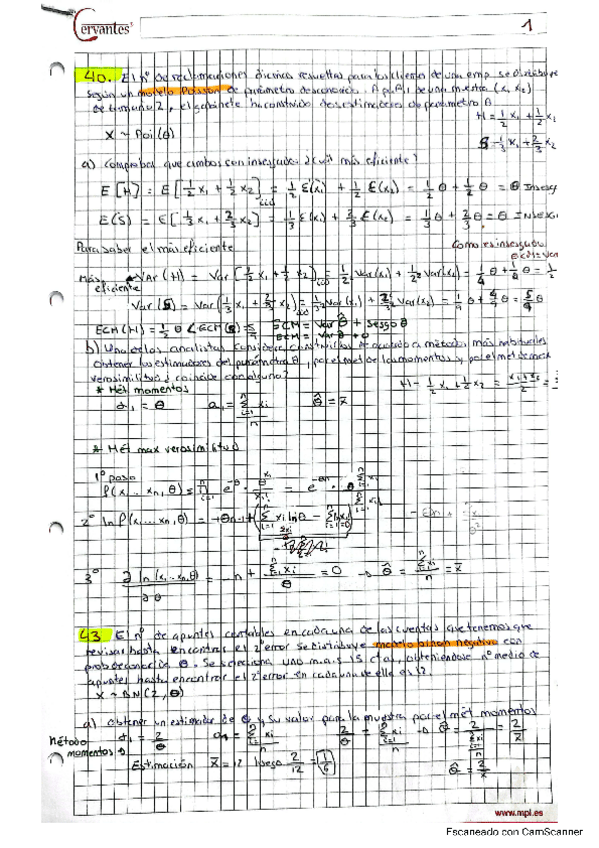 Cervantes
1
40. El nº de reclamaciones diarias resueltas para los clientes de una emp se distribuye
según un modelo Poisson de parámetro desconocido. A partir de una muestra (x1 x2)
de tamaño 2, el gabinete ha construido dos estimadores de parámetro θ
H = 1/2 x1 + 1/2 x2
X ~ Poi(θ)
S = 1/3 x1 + 2/3 x2
a) Comprobar que ambos son insesgados ¿cuál más eficiente?
E[H] = E[1/2 x1 + 1/2 x2] = 1/2 E(x1) + 1/2 E(x2) = 1/2 θ + 1/2 θ = θ Insesg
E(S) = E[1/3 x1 + 2/3 x2] = 1/3 E(x1) + 2/3 E(x2) = 1/3 θ + 2/3 θ = θ INSESG
Para saber el más eficiente
Como es insesgado
Más eficiente
Var(H) = Var[1/2 x1 + 1/2 x2] = 1/2² Var(x1) + 1/2² Var(x2) = 1/4 θ + 1/4 θ = 1/2
Var(S) = Var(1/3 x1 + 2/3 x2) = Var(x1) + Var(x2) = 1/9 θ + 4/9 θ = 5/9 θ
ECM(H) = 1/2 θ < ECM(S) = 5
ECM = Var θ̂ + sesgo θ
ECM = Var θ
b) Uno de los analistas considera construirlos de acuerdo a métodos más habituales
obtener los estimadores del parámetro θ, por el met de los momentos y por el met de max
verosimilitud ¿coincide con alguno?
H = 1/2 x1 + 1/2 x2 = x1 + x2 / 2 =
* Mét momentos
α1 = θ a1 = Σ xi / n θ̂ = x̄
* Mét max verosimilitud
1º paso
f(x1 ... xn, θ) =
2º ln f(x1 ... xn, θ) =
3º ∂ ln(x1 ... xn, θ) / ∂θ = -n + Σ xi / θ = 0 → θ̂ = Σ xi / n = x̄
43 El nº de apuntes contables en cada una de las cuentas que tenemos que
revisar hasta encontrar el 2º error se distribuye modelo binom negativo con
prob desconocida θ. Se selecciona una m.a.s 15 ctas, obteniéndose nº medio de
apuntes hasta encontrar el 2º error en cada una de ella es 12.
X ~ BN(2, θ)
a) obtener un estimador de θ y su valor para la muestra por el mét momentos
Método momentos →
α1 = 2/θ a1 = Σ xi / n 2/θ = Σ xi / n → θ̂ = 2 / (Σ xi / n) = 2/x̄
Estimación x̄ = 12 luego 2/12 = 1/6
θ̂ = 2/x̄
www.mpl.es
Escaneado con CamScanner